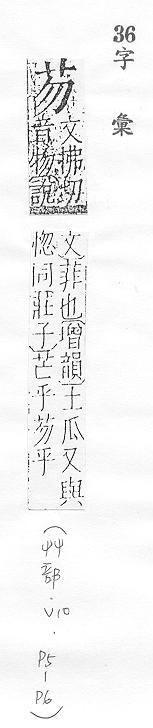 36字彙
芴
文拂切
音物說
文菲也增韻土瓜又與
惚同莊子芒乎芴乎
(艸部.V10.P5-P6)